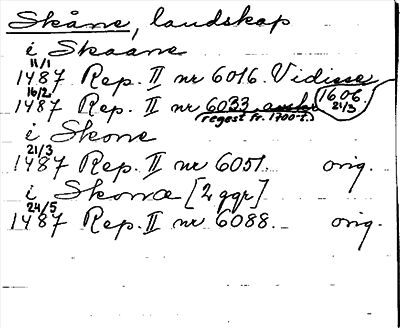 Skåne, landskap
i Skaane
11/1
1487 Rep. II nr 6016. Vidisse
16/2 1606
1487 Rep. II nr 6033. 21/3
(regest fr. 1700-t.)
i Skone
21/3
1487 Rep. II nr 6051. orig.
i Skonæ [2 ggr]
24/5
1487 Rep. II nr 6088. orig.